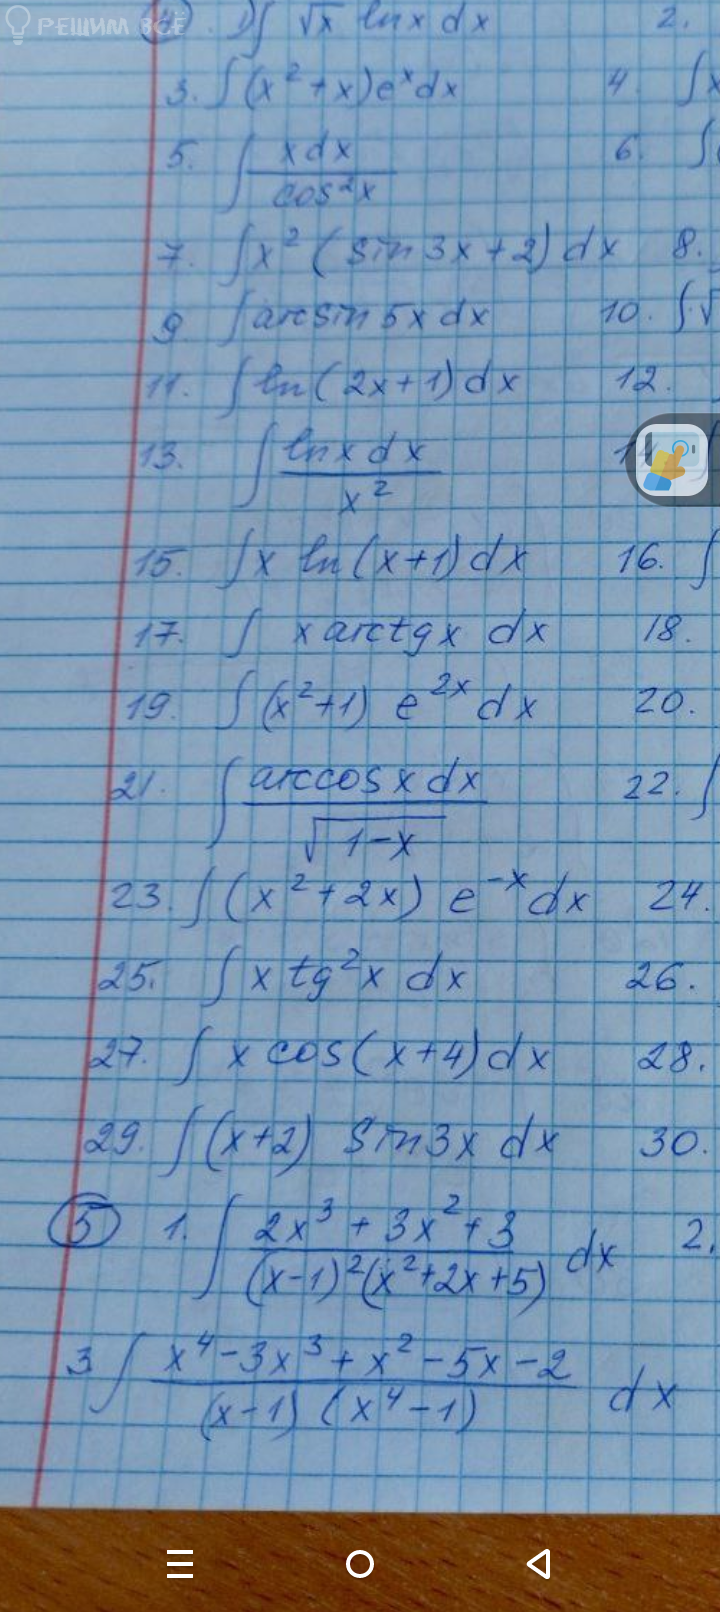 РЕШИМ ВСЁ
④. 1) ∫ √x ln x dx 2.
3. ∫ (x² + x) eˣ dx 4. ∫ x
5. ∫ x dx / cos² x 6. ∫
7. ∫ x² (sin 3x + 2) dx 8.
9. ∫ arcsin 5x dx 10. ∫ √
11. ∫ ln (2x + 1) dx 12.
13. ∫ ln x dx / x² 14
15. ∫ x ln (x + 1) dx 16. ∫
17. ∫ x arctg x dx 18.
19. ∫ (x² + 1) e²ˣ dx 20.
21. ∫ arccos x dx / √(1 - x) 22. ∫
23. ∫ (x² + 2x) e⁻ˣ dx 24.
25. ∫ x tg² x dx 26.
27. ∫ x cos (x + 4) dx 28.
29. ∫ (x + 2) sin 3x dx 30.
⑤ 1. ∫ (2x³ + 3x² + 3) / ((x - 1)² (x² + 2x + 5)) dx 2.
3 ∫ (x⁴ - 3x³ + x² - 5x - 2) / ((x - 1) (x⁴ - 1)) dx